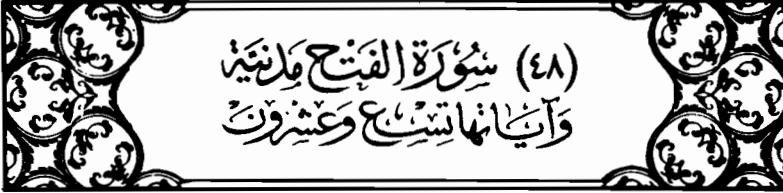 (٤٨) سُورَة الفَتْح مَدنيَّة
وَآيَاتها تِسْع وَعشْرُونَ